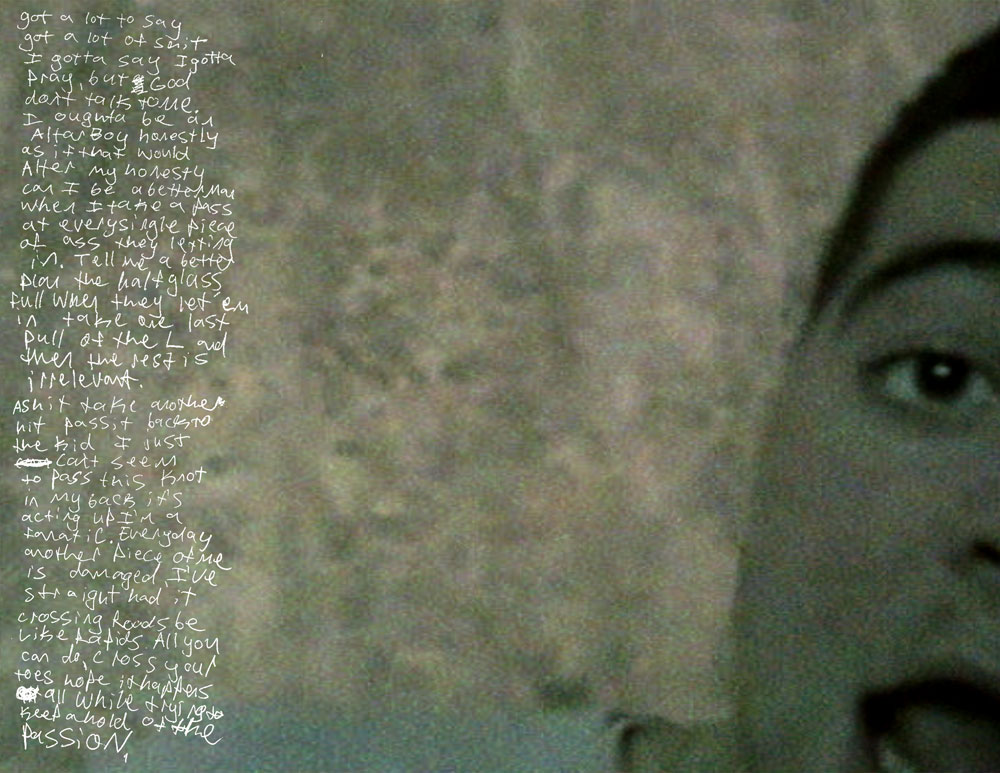 got a lot to say
got a lot of shit
I gotta say I gotta
pray, but God
don't talk to me.
I oughta be an
AltarBoy honestly
as if that would
Alter my honesty
can I be a better man
when I take a pass
at every single piece
of ass they letting
in. Tell me a better
plan the half glass
full when they let 'em
in take one last
pull of the L and
then the rest is
irrelevant.
Ashit take another
hit pass it back to
the kid I just
can't seem
to pass this knot
in my back it's
acting up I'm a
fanatic. Everyday
another piece of me
is damaged, I've
straight had it
crossing Roads be
like Rapids All you
can do, cross your
toes hope it happens
all while trying to
keep a hold of the
PASSION,